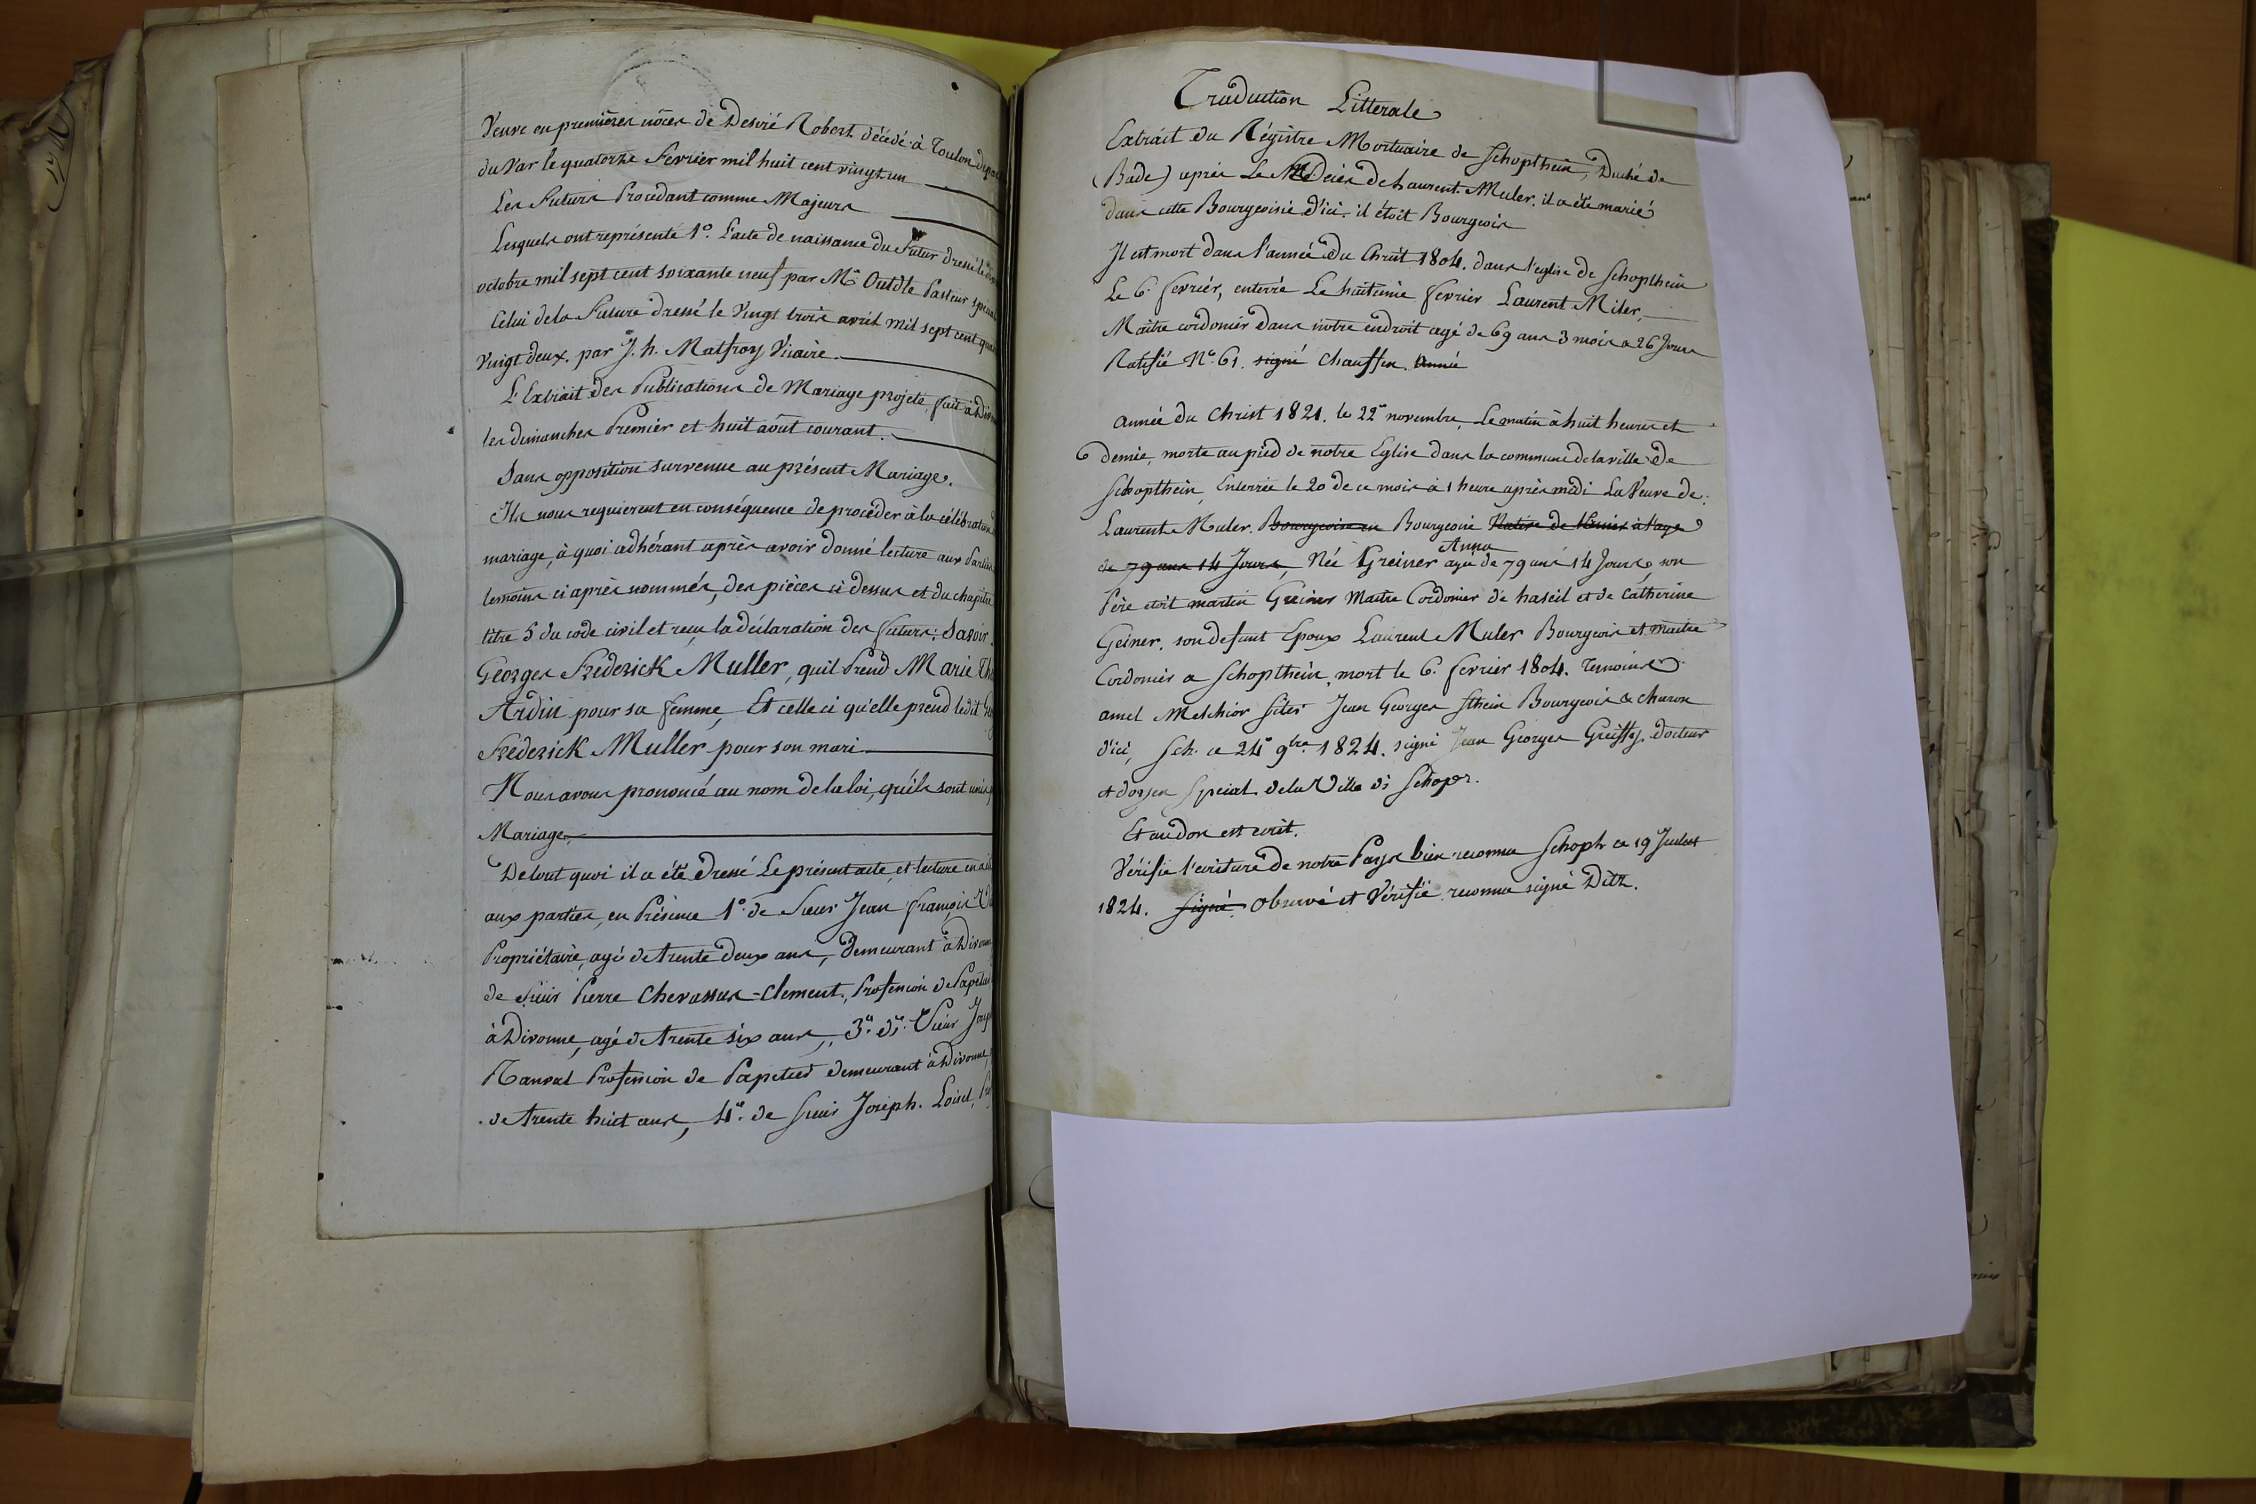 Veuve en premières nôces de Desiré Robert décédé à Toulon
du Var le quatorze Fevrier mil huit cent vingt un
Les Futurs Procédant comme Majeurs
Lesquels ont représenté 1o. L'acte de naissance du Futur dressé le
octobre mil sept cent soixante neuf par Mr Pasteur
Celui de la Future dressé le Vingt trois avril mil sept cent
Vingt deux. par J. h. Malfroy Vicaire.
L'Extrait des Publications de Mariage projeté, fait à
les dimanches Premier et huit aôut courant.
Sans opposition survenue au présent Mariage.
Ils nous requierent en conséquence de procéder à la célébration
mariage, à quoi adhérant après avoir donné lecture aux
temoins ci après nommés, des pièces ci dessus et du chapitre
titre 5 du code civil et reçu la déclaration des futurs; Savoir
Georges Fréderick Muller, qu'il Prend Marie
Ardin pour sa femme, Et celle ci qu'elle prend ledit
Fréderick Muller pour son mari
Nous avons prononcé au nom de la loi, qu'ils sont unis
Mariage.
De tout quoi il a été dressé Le présent acte, et lecture en a
aux parties, en Présence 1o. de Sieur Jean François
Propriétaire, agé de trente deux ans, demeurant à
de Sieur Pierre Chevassus-Clement, Profession de
à Divonne, agé de trente six ans, 3o. dt. Sieur
Profession de Papetier demeurant à Divonne,
de trente huit ans, 4o. de Sieur Joseph. Loisel,
Traduction Litterale
Extrait du Régistre Mortuaire de Schopthein, Duché de
(Bade) après Le Décès de Laurent Muler. il a été marié
dans cette Bourgeoisie d'ici. il étoit Bourgeois
Il est mort dans l'année du Christ 1804. dans l'eglise de Schopthein
Le 6. fevriér, enterré Le huitieme fevrier Laurent Miler,
Maitre cordonier dans notre endroit agé de 69 ans 3 mois & 26 Jours
Ratifié No. 61. signé Chauffer. Année
année du Christ 1821. le 22e novembre, Le matin à huit heures et
demie, morte au pied de notre Eglise dans la commune de la ville de
Schopthein, Enterrée le 20 de ce mois à 1 heure après midi La Veuve de
Laurent Muler. Bourgeoise Bourgeoise Native de à l'age
de 79 ans 14 Jours, Née Greiner Anna agée de 79 ans 14 Jours, son
Père etoit martin Greiner Maitre Cordonier de haseil et de Catherine
Geiner. son defunt Epoux Laurent Muler Bourgeois et maitre
Cordonier a Schopthein, mort le 6. fevrier 1804. temoins
amel Melchior Siter Jean Georges Sthein Bourgeois & charon
d'ici, Sch. ce 24e 9bre 1824. signé Jean Georges Docteur
& doyen Special de la Ville di Schopr.
Et au dos est ecrit.
Vérifié l'ecriture de notre Pays bien reconnu Schoph ce 19 Juillet
1824. Signé Observé et Vérifié reconnu signé Ditz.